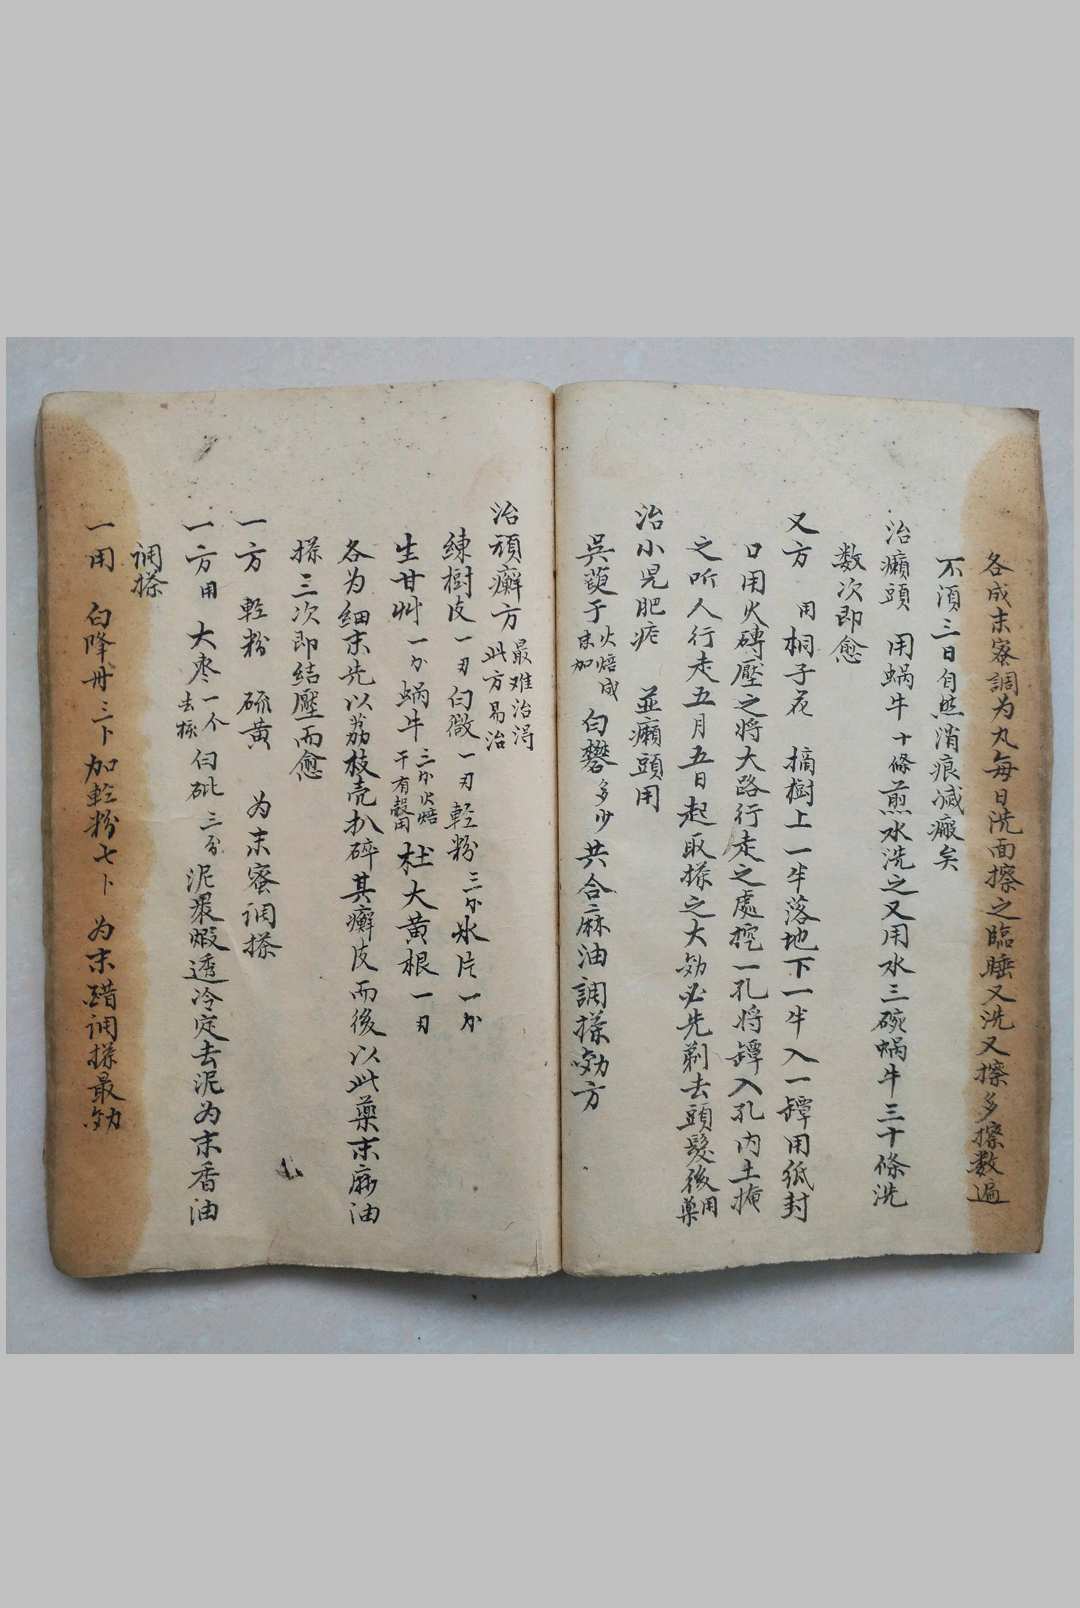 各成末蜜調为丸每日洗面擦之臨睡又洗又擦多擦数遍
不須三日自然消痕滅瘢矣
治癩頭 用蝸牛十條煎水洗之又用水三碗蝸牛三十條洗
数次即愈
又方 用桐子花 摘樹上一半落地下一半入一罈用纸封
口用火磚壓之将大路行走之處挖一孔将罈入孔内土掩
之听人行走五月五日起取搽之大効必先剃去頭髮後用藥
治小児肥疮 並癩頭用
吳萸子火焙成末加白礬多少共合麻油調搽効方
治頑癬方 最难治得此方易治
練樹皮一刃白微一刃輕粉三分氷片一分
生甘艸一分蝸牛三分火焙干有殼用杜大黄根一刃
各为细末先以荔枝壳扒碎其癬皮而後以此藥末麻油
搽三次即结壓而愈
一方 輕粉 硫黄 为末蜜调搽
一方用 大枣一个去核白砒三分泥裹煅透冷定去泥为末香油
调搽
一用 白降丹三卜加輕粉七卜 为末醋调搽最効